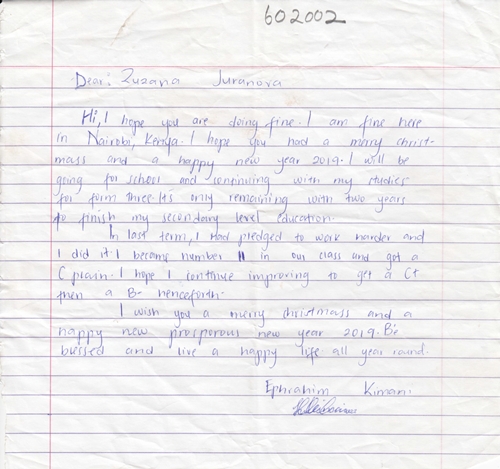 602002
Dear: Zuzana Juranova
Hi, I hope you are doing fine. I am fine here
in Nairobi, Kenya. I hope you had a merry christ-
mass and a happy new year 2019. I will be
going for school and continuing with my studies
for form three. It's only remaining with two years
to finish my secondary level education.
In last term, I had pledged to work harder and
I did it. I became number 11 in our class and got a
C plain. I hope I continue improving to get a C+
then a B- henceforth.
I wish you a merry christmass and a
happy new prosporous new year 2019. Be
blessed and live a happy life all year round.
Ephrahim Kimani